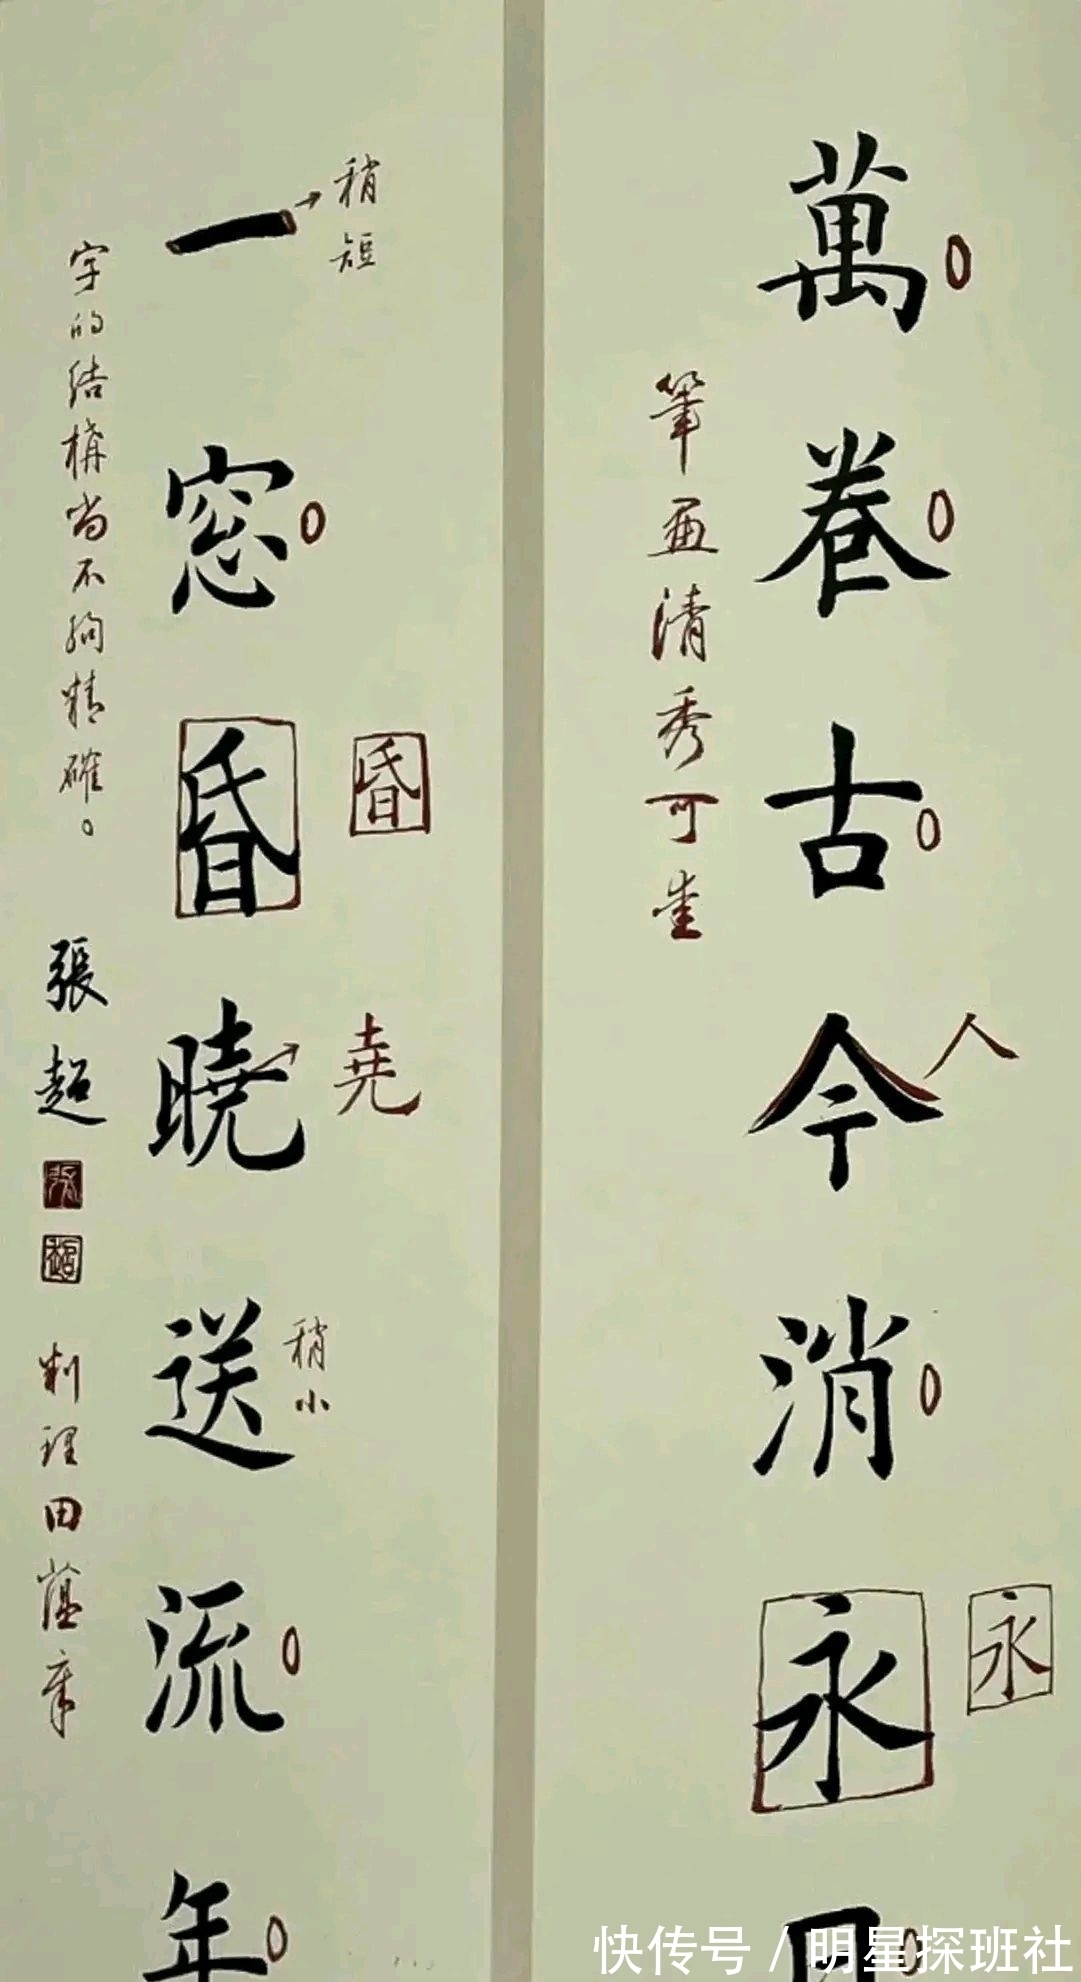 萬卷古今消永日
筆畫清秀可坐
人
永
一窓昏曉送流年
稍短
昏
堯
稍小
字的結構尚不夠精確。
張超
田蘊章
快传号 / 明星探班社